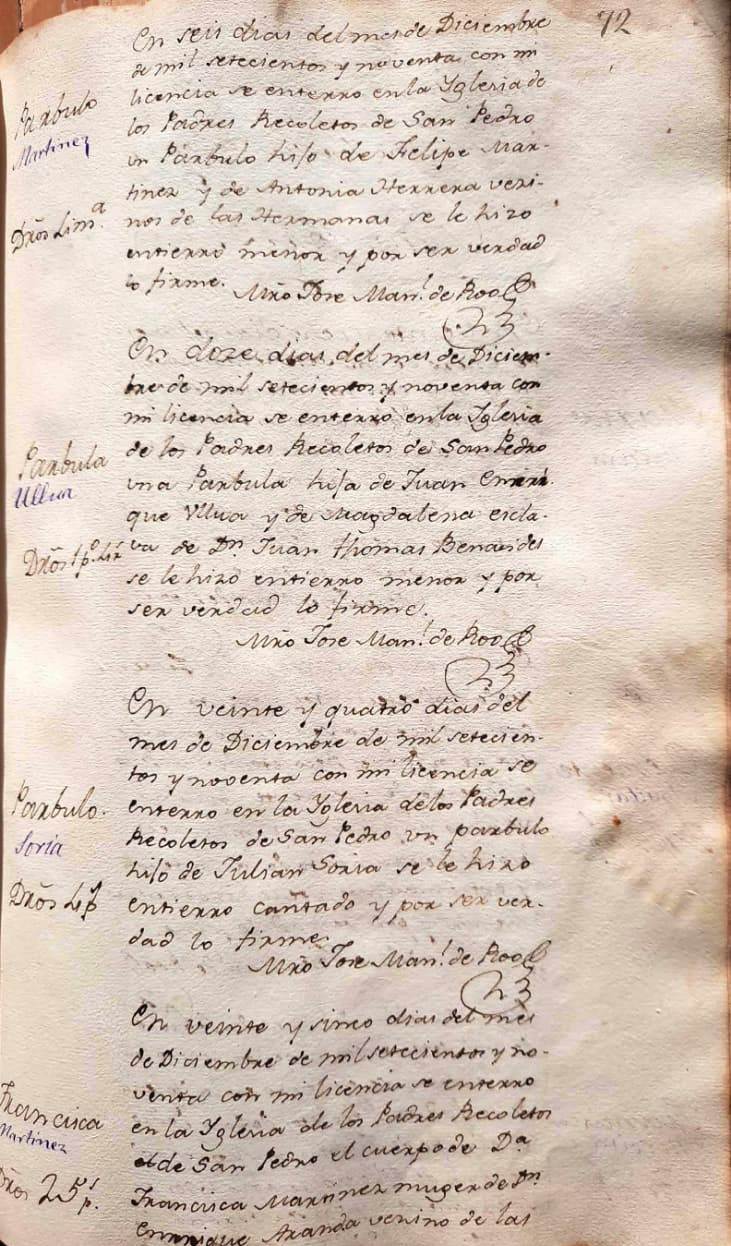 72
En seis dias del mes de Diciembre
de mil setecientos y noventa con mi
licencia se enterro en la Yglesia de
los Padres Recoletos de San Pedro
un Parbulo hijo de Felipe Mar-
tinez y de Antonia Herrera veci-
nos de las Hermanas se le hizo
entierro menor y por ser verdad
lo firme.
Mrõ Jose Man.l de Roo
Parbulo
Martinez
Drõs Lim.a
En doze dias del mes de Diciem-
bre de mil setecientos y noventa con
mi licencia se enterro en la Yglesia
de los Padres Recoletos de San Pedro
una Parbula hija de Juan Enrri-
que Ullua y de Magdalena escla-
va de Dn. Juan thomas Benavides
se le hizo entierro menor y por
ser verdad lo firme.
Mrõ Jose Man.l de Roo
Parbula
Ullua
Drõs
En veinte y quatro dias del
mes de Diciembre de mil setecien-
tos y noventa con mi licencia se
enterro en la Yglesia de los Padres
Recoletos de San Pedro un parbulo
hijo de Julian Soria se le hizo
entierro cantado y por ser ver-
dad lo firme.
Mrõ Jose Man.l de Roo
Parbulo.
Soria
Drõs
En veinte y sinco dias del mes
de Diciembre de mil setecientos y no-
venta con mi licencia se enterro
en la Yglesia de los Padres Recoletos
de San Pedro el cuerpo de Da
Francisca Martinez muger de Dn.
Enrrique Aranda vecino de las
Francisca
Martinez
Drõs 25 p.s